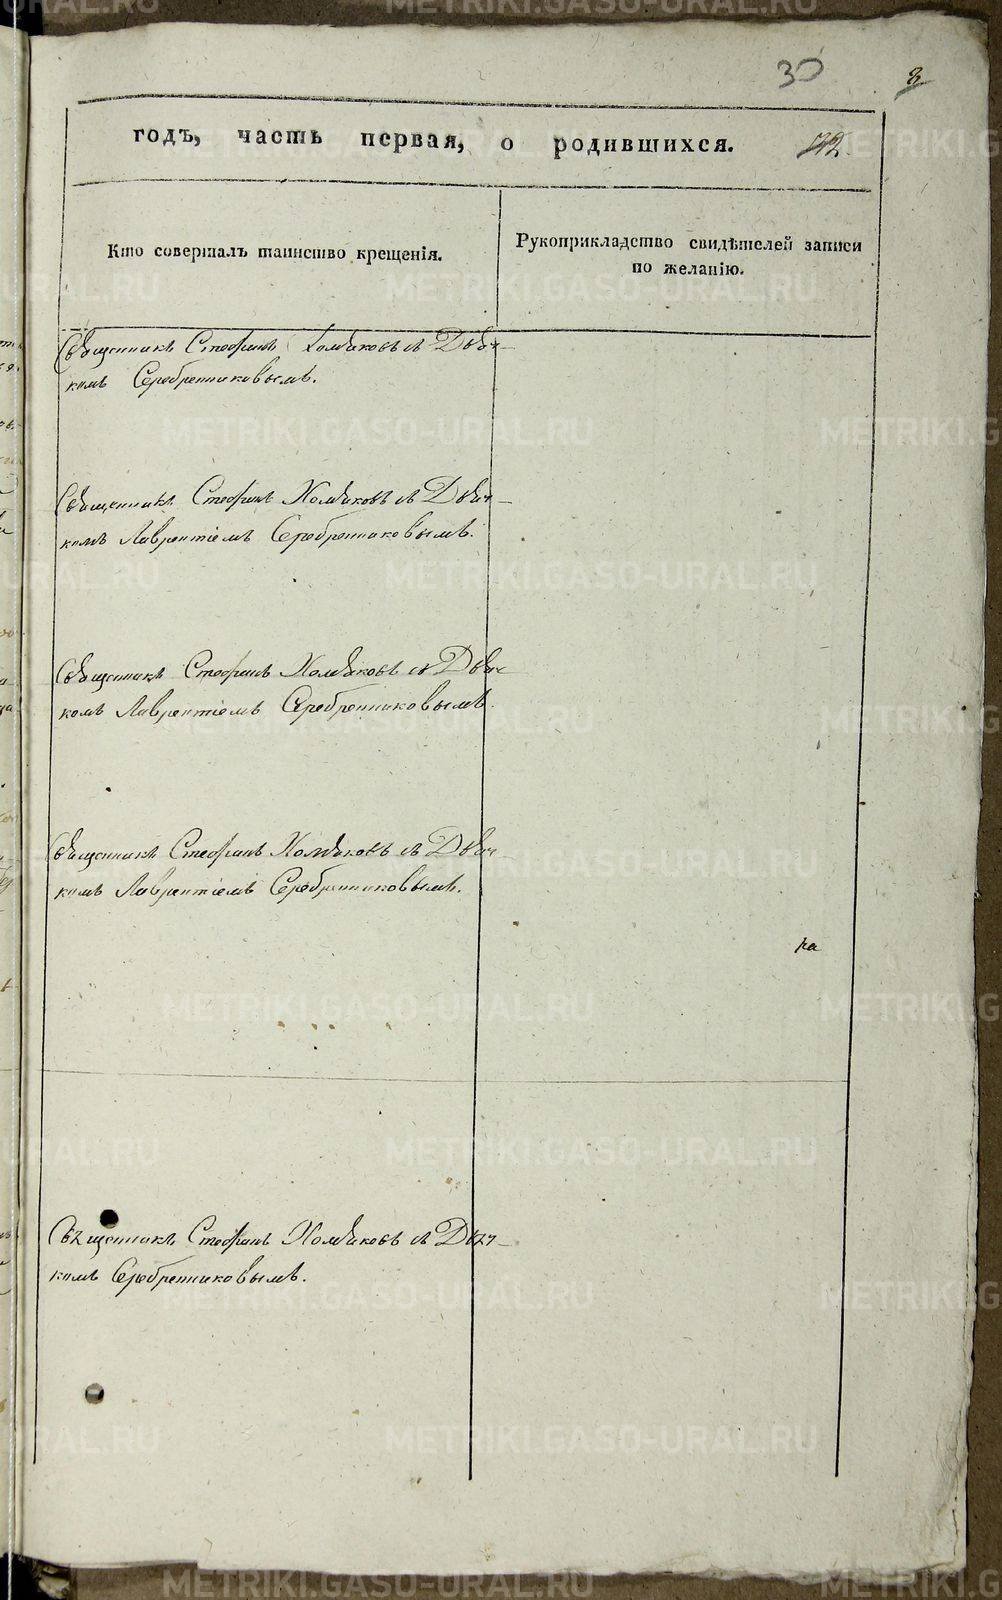 30
годъ, часть первая, о родившихся.
Кто совершалъ таинство крещенія.
Рукоприкладство свидѣтелей записи
по желанію.
Священникъ Стефанъ Хомяковъ съ Дьяч-
комъ Серебренниковымъ.
Священникъ Стефанъ Хомяковъ съ Дьяч-
комъ Лаврентіемъ Серебренниковымъ.
Священникъ Стефанъ Хомяковъ съ Дьяч-
комъ Лаврентіемъ Серебренниковымъ.
Священникъ Стефанъ Хомяковъ съ Дьяч-
комъ Лаврентіемъ Серебренниковымъ.
Священникъ Стефанъ Хомяковъ съ Дьяч-
комъ Серебренниковымъ.
METRIKI.GASO-URAL.RU